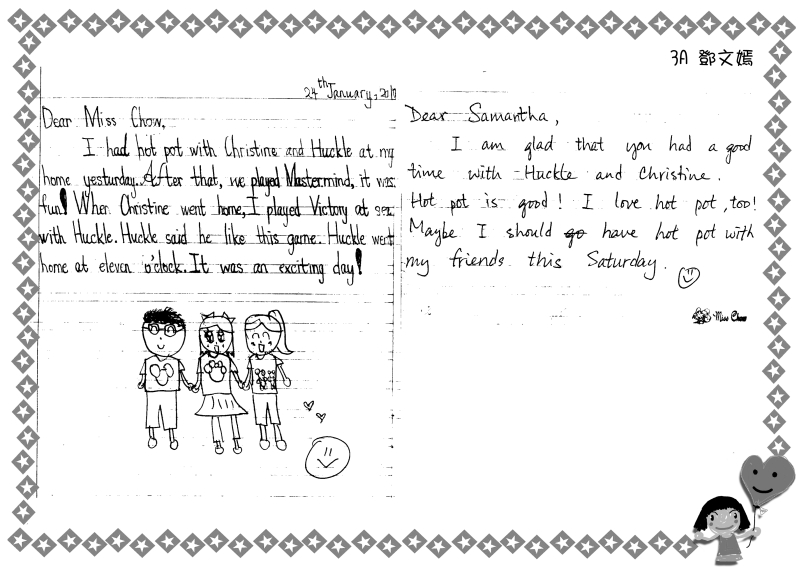 3A 鄧文嫣
24th January, 2017
Dear Miss Chow,
I had hot pot with Christine and Huckle at my
home yesturday. After that, we played Mastermind, it was
fun! When Christine went home, I played Victory at sea
with Huckle. Huckle said he like this game. Huckle went
home at eleven o'clock. It was an exciting day!
Dear Samantha,
I am glad that you had a good
time with Huckle and Christine.
Hot pot is good! I love hot pot, too!
Maybe I should go have hot pot with
my friends this Saturday.
Miss Chow